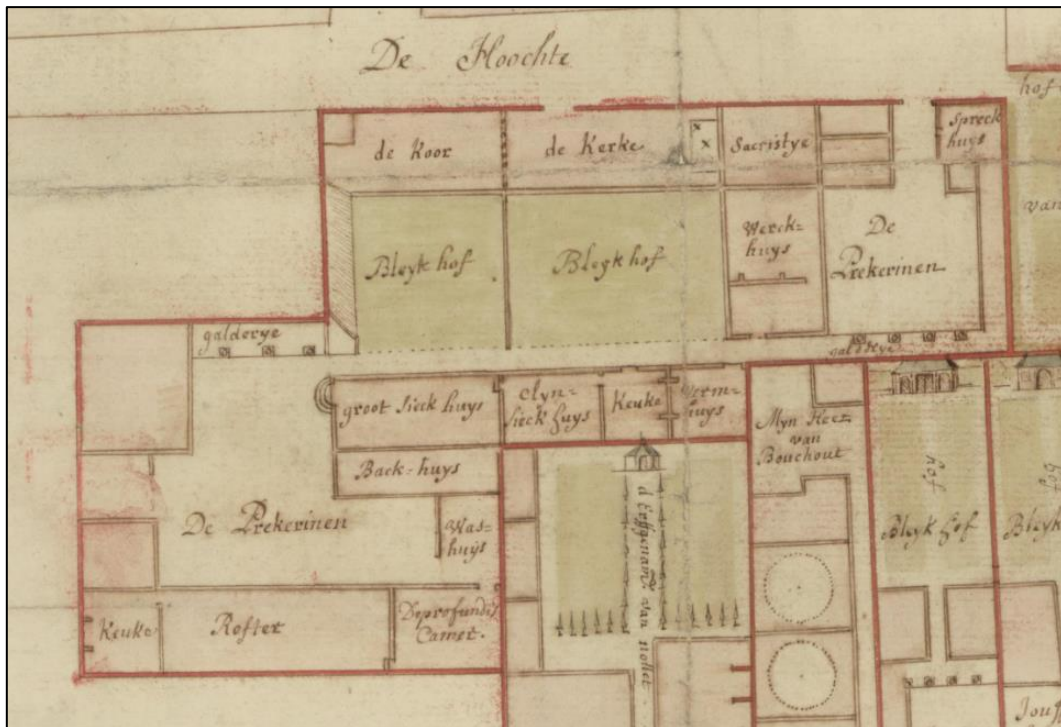 De Hoochte
hof
de Koor
de Kerke
Sacristye
Spreck
huys
van
Bleyk hof
Bleyk hof
Werck-
huys
De
Prekerinen
galderye
galderye
groot Sieck huys
Clyn-
sieck huys
Keuke
Werm-
huys
Myn Heer
van
Bouchout
Back-huys
hof
hof
De Prekerinen
Was-
huys
Bleyk hof
Bleyk
d'erffgenam van nollet
Keuke
Refter
Deprofundis
Camer.